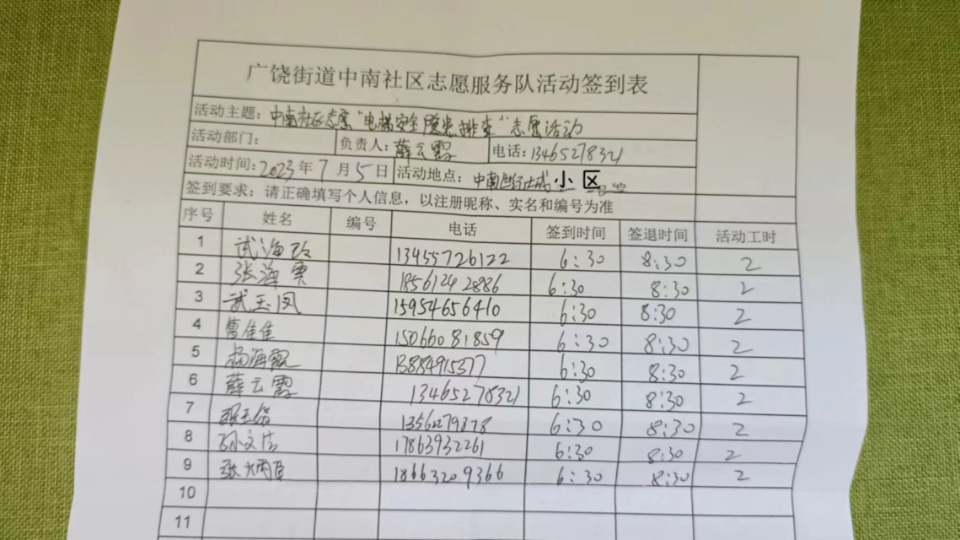 广饶街道中南社区志愿服务队活动签到表
活动主题：中南社区志愿"电梯安全隐患排查"志愿活动
活动部门： 负责人：薛云霞 电话：13465278321
活动时间：2023年7月5日 活动地点：中南世纪城小区
签到要求：请正确填写个人信息，以注册昵称、实名和编号为准
序号 姓名 编号 电话 签到时间 签退时间 活动工时
1 武海玲 13455726122 6:30 8:30 2
2 张海霞 18561242886 6:30 8:30 2
3 武玉凤 15954656410 6:30 8:30 2
4 曹佳佳 15066081859 6:30 8:30 2
5 杨海霞 13884915377 6:30 8:30 2
6 薛云霞 13465278321 6:30 8:30 2
7 6:30 8:30 2
8 孙文洁 17863932261 6:30 8:30 2
9 张 18663209366 6:30 8:30 2
10
11